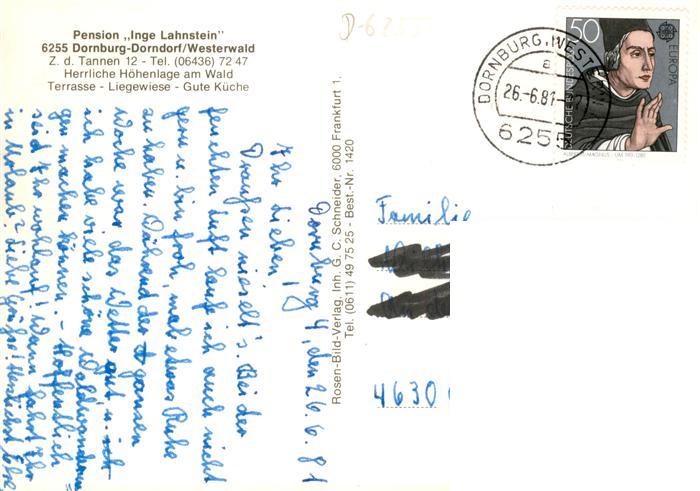 Pension „Inge Lahnstein"
6255 Dornburg-Dorndorf/Westerwald
Z. d. Tannen 12 - Tel. (06436) 72 47
Herrliche Höhenlage am Wald
Terrasse - Liegewiese - Gute Küche
D-6255
DORNBURG, WESTERW
a
26.-6.81-
6255
50
EUROPA
DEUTSCHE BUNDESPOST
ALBERTUS MAGNUS · UM 1193-1280
Rosen-Bild-Verlag, Inh. G. C. Schneider, 6000 Frankfurt 1.
Tel. (0611) 49 75 25 - Best.-Nr. 1420
Dornburg 4, den 26.6.81
Ihr Lieben!
Draußen nieselt's. Bei der
feuchten Luft laufe ich auch nicht
gern u. bin froh, mal etwas Ruhe
zu haben. Während der ganzen
Woche war das Wetter gut u.
ich habe viele schöne Waldwanderun
gen machen können. - Hoffentlich
seid Ihr wohlauf! Wann fahrt Ihr
in Urlaub? Liebe Grüße! Herzlichst
Familie
4630